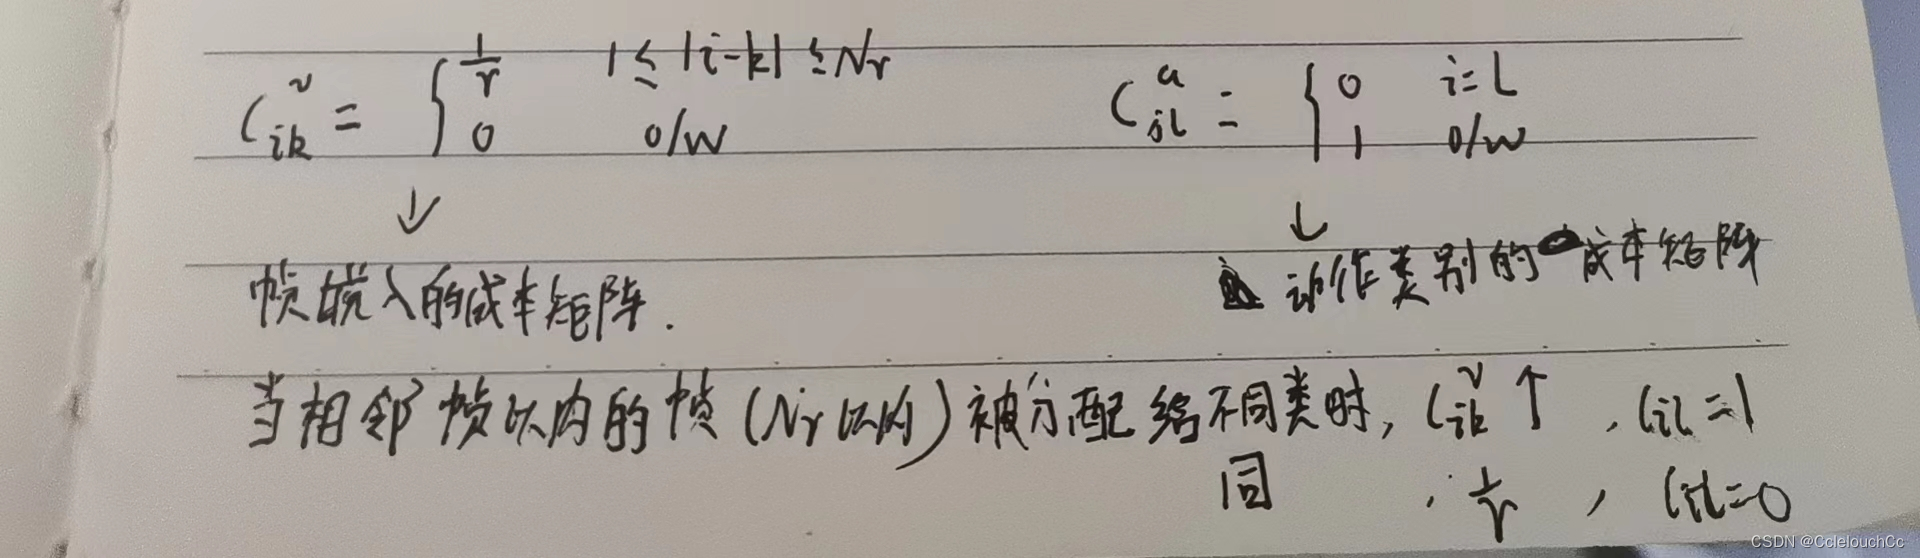 C^v_{ik} = { 1/r 1 ≤ |i-k| ≤ Nr
0 o/w
C^a_{jl} = { 0 i=l
1 o/w
↓
↓
帧嵌入的成本矩阵.
动作类别的成本矩阵
当相邻帧以内的帧(Nr以内)被分配给不同类时, C^v_{ik} ↑ , C_{il}=1
同 , 1/r , C_{il}=0
CSDN @CclelouchCc